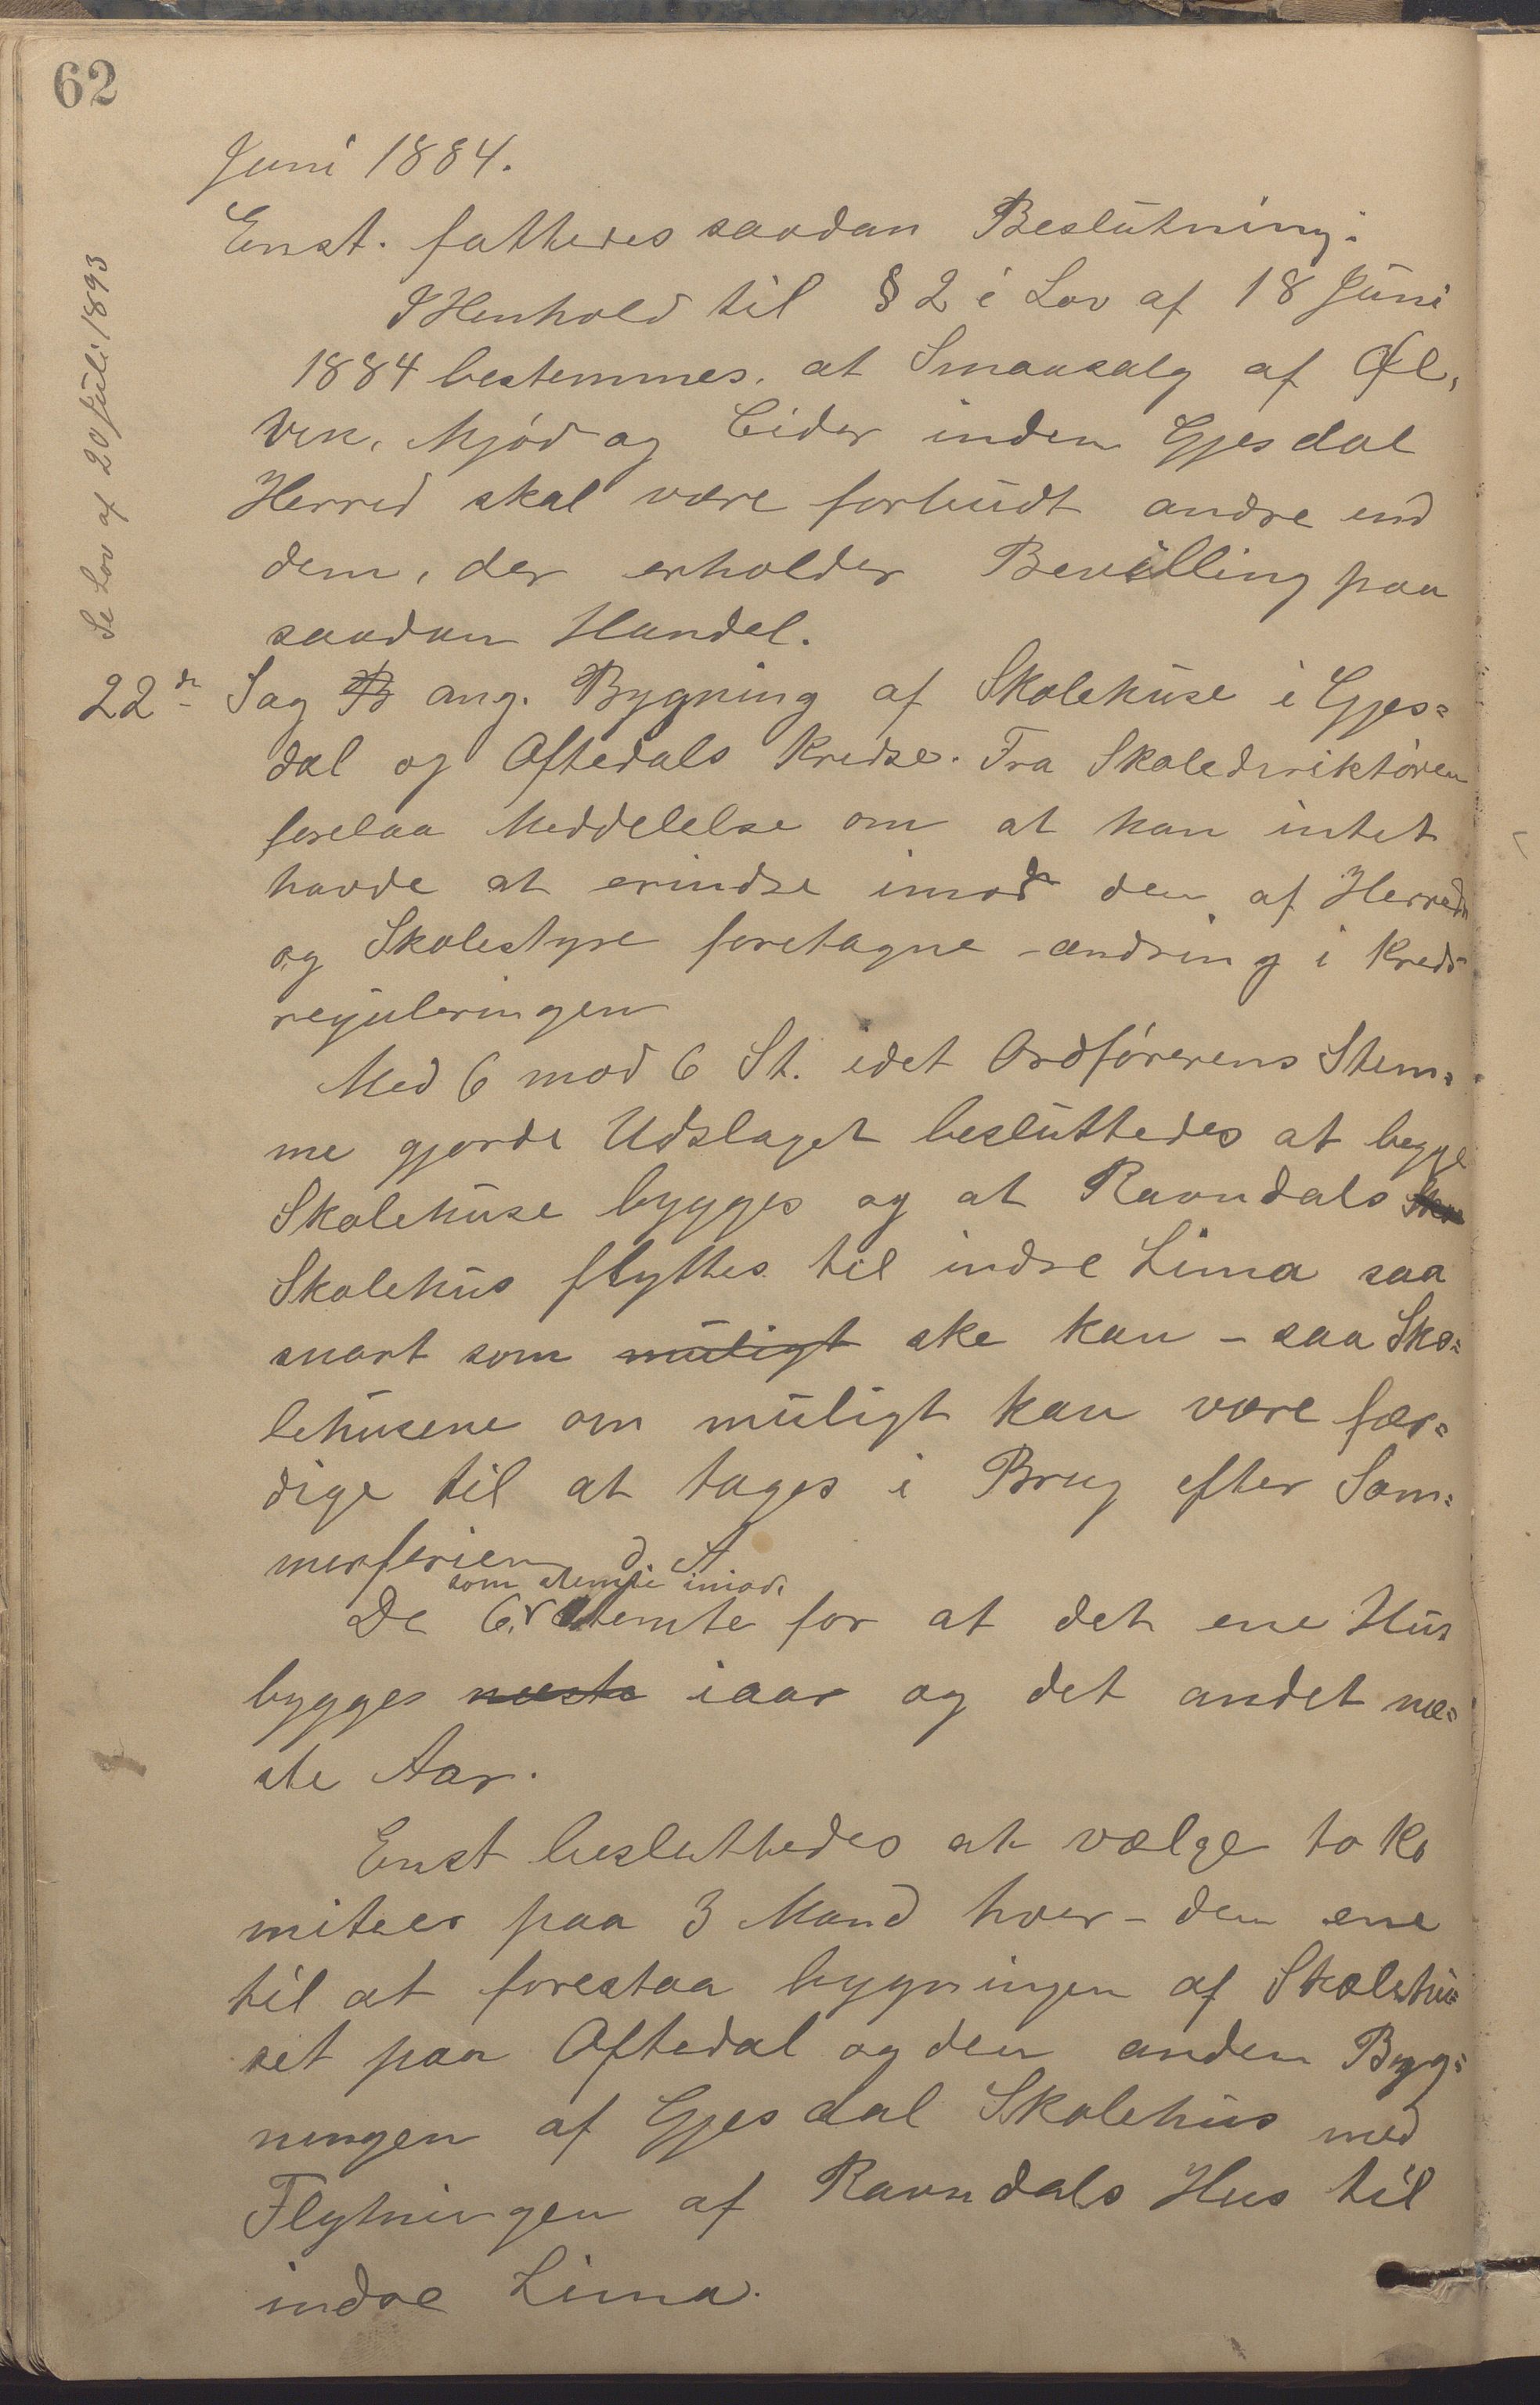 62
Juni 1884.
Enst. fattedes saadan Beslutning:
I Henhold til § 2 i Lov af 18 Juni
1884 bestemmes, at Smaasalg af Øl,
Vin, Mjød og Cider inden Gjesdal
Herred skal være forbudt andre end
dem, der erholder Bevilling paa
saadan Handel.
Se Lov af 20 Juli 1893
22de Sag B ang. Bygning af Skolehuse i Gjes=
dal og Oftedals Kredse. Fra Skoledirektøren
forelaa Meddelelse om at han intet
havde at erindre imod den af Herreds
og Skolestyre foretagne ændring i Kreds
reguleringen
Med 6 mod 6 St. idet Ordførerens Stem=
me gjorde Udslaget besluttedes at begge
Skolehuse bygges og at Ravndals
Skolehus flyttes til indre Lima saa
snart som muligt ske kan - saa Sko=
lehusene om muligt kan være fær=
dige til at tages i Brug efter Som=
merferien d. A.
som stemte imod,
De 6, stemte for at det ene Hus
bygges næste iaar og det andet næ=
ste Aar.
Enst besluttedes at vælge to Ko
miteer paa 3 Mand hver - den ene
til at forestaa bygningen af Skolehu=
set paa Oftedal og den anden Byg=
ningen af Gjesdal Skolehus med
Flytningen af Ravndals Hus til
indre Lima.